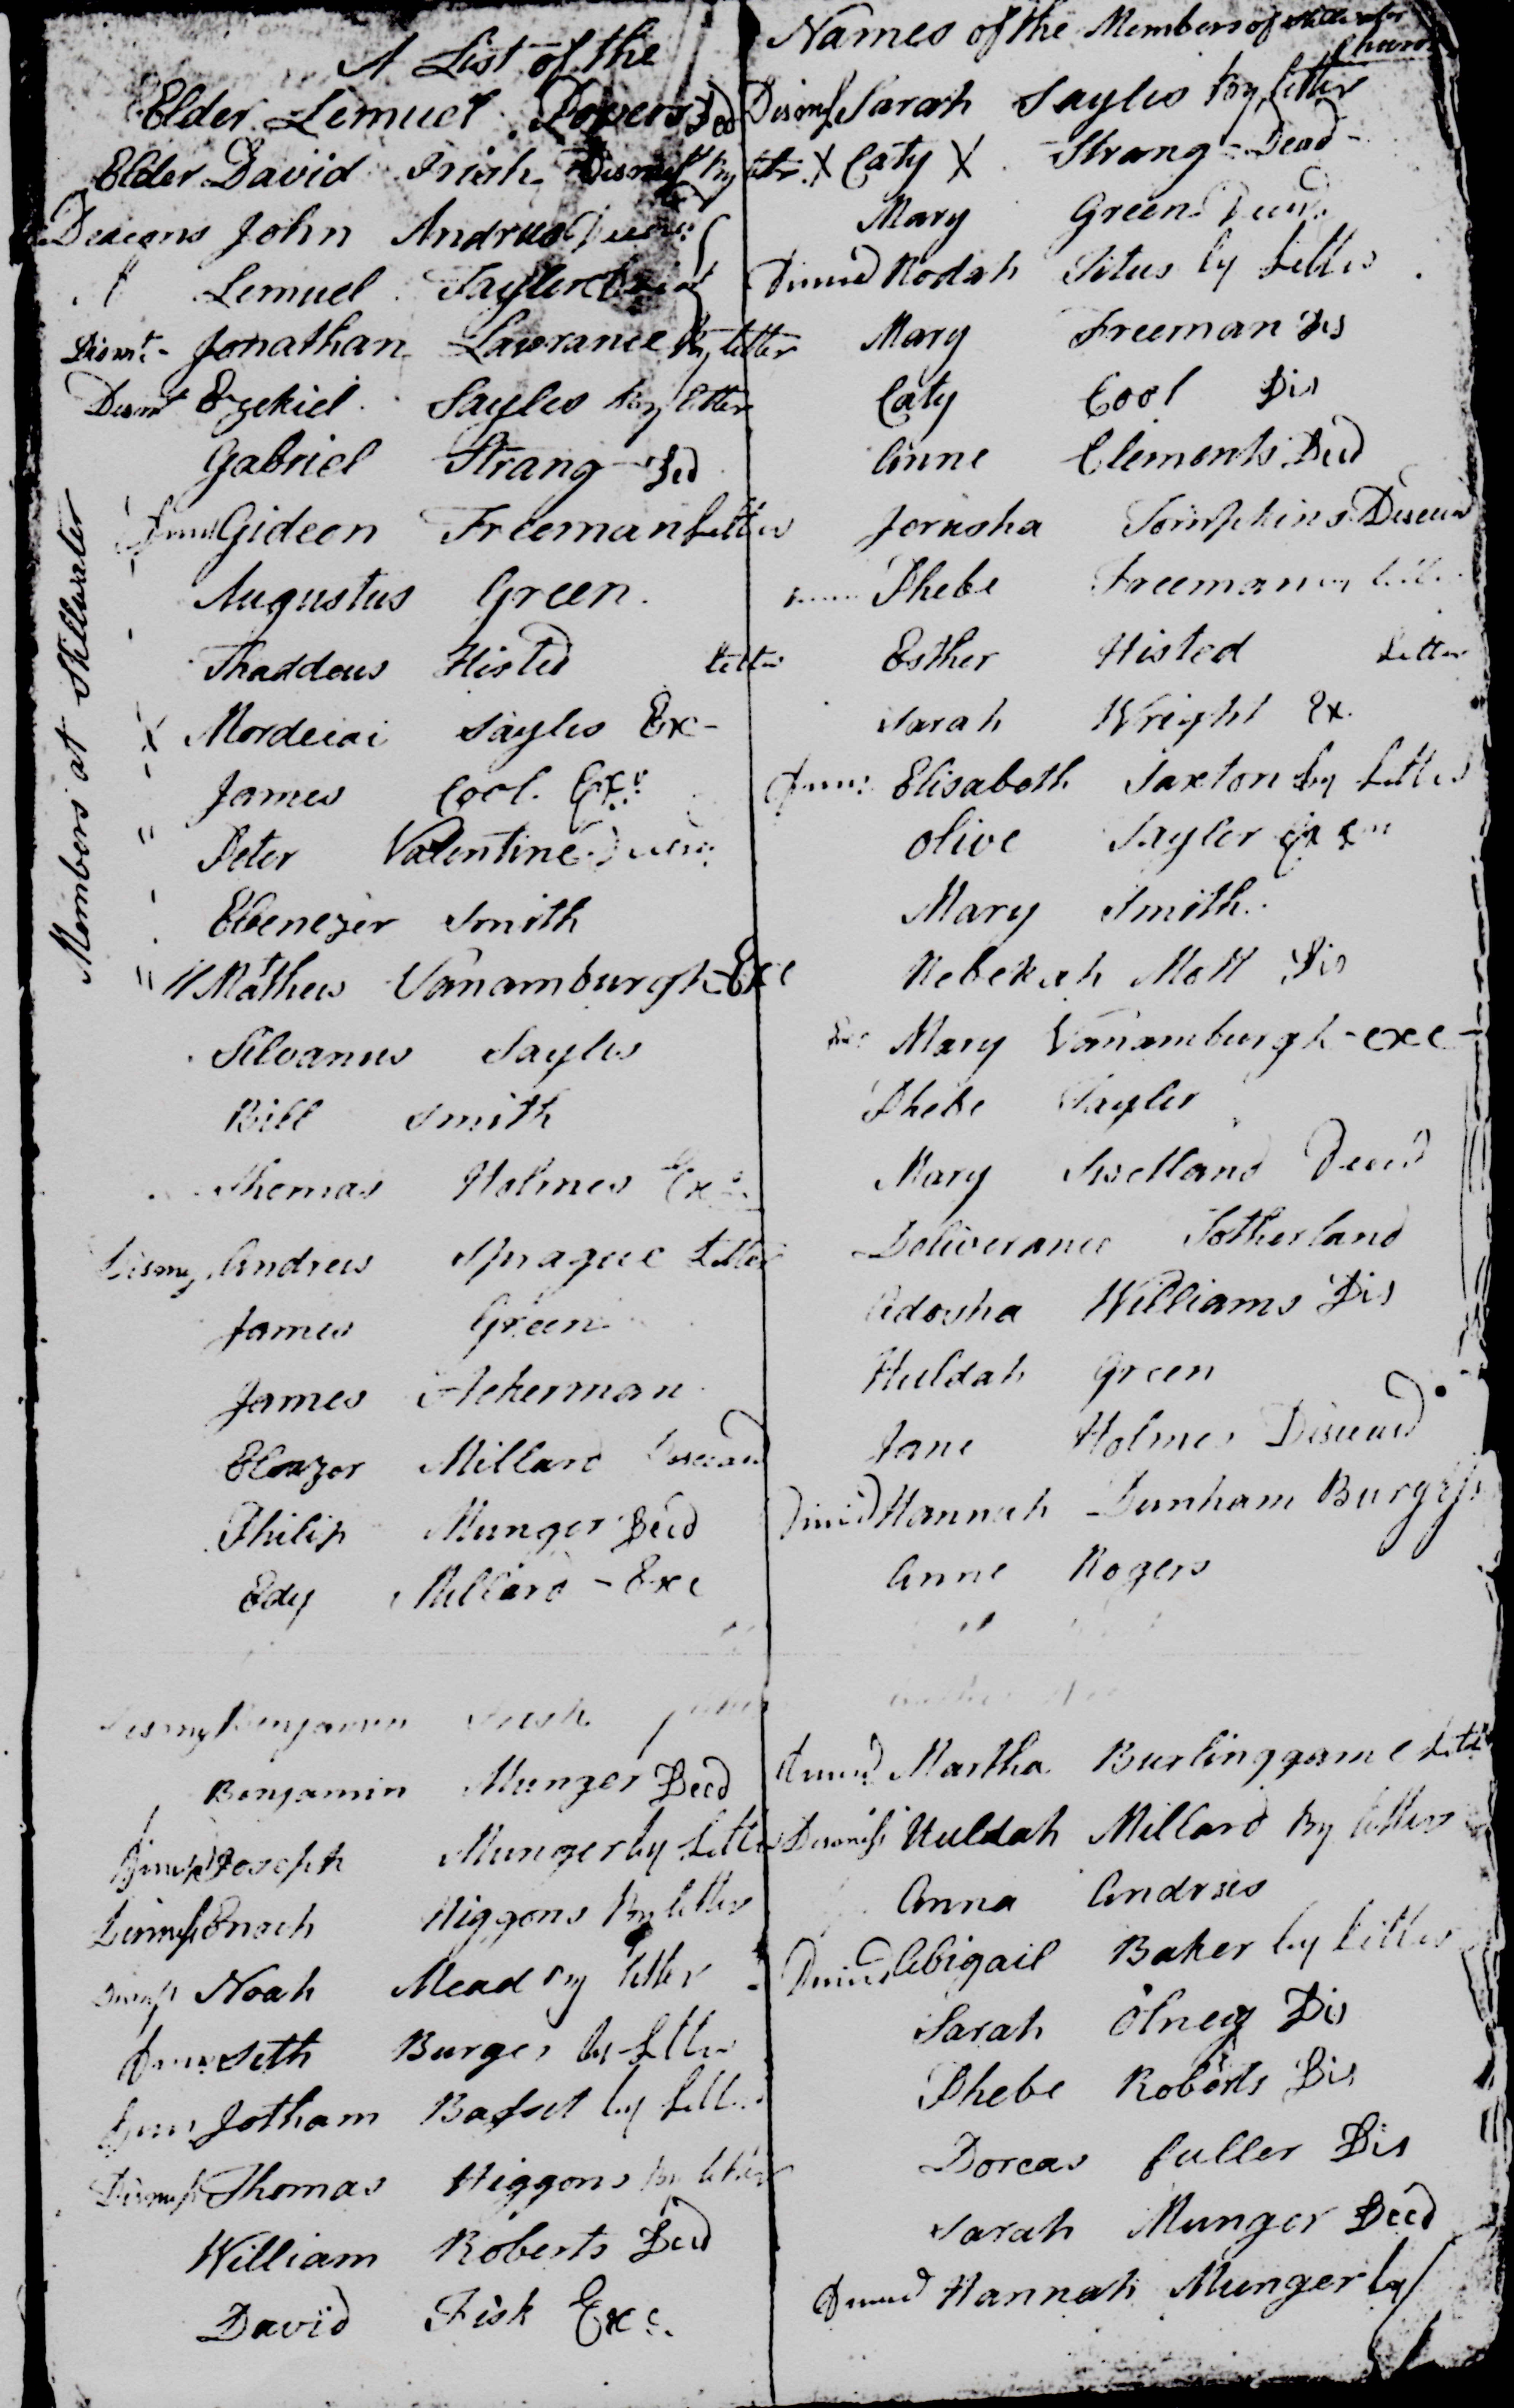 A List of the
Elder Lemuel Powers Ded
Elder David Irish Dismist by letter
Deacons John Andrus
Lemuel Tayler
Dismt Jonathan Lawrance By letter
Dismt Ezekiel Sayles by letter
Gabriel Strang Ded
Gideon Freeman Letter
Augustus Green
Thaddeus Histed letter
X Mordecai Sayles Exc
James Cool Exc
Peter Valentine
Ebenezer Smith
" Mathew Vanamburgh Exc
Silvanus Sayles
Bill Smith
Thomas Holmes Exc
Dismis Andrew Sprague Letter
James Green
James Ackerman
Eleazer Millard
Philip Munger Decd
Edy Millard - Exc
Benjamin Irish
Benjamin Munger Decd
Joseph Munger by Letter
Dismiss Enoch Higgons By letter
Dismiss Noah Mead by letter
Seth Burges by Letter
Jotham by Letter
Dismiss Thomas Higgons by letter
William Roberts Decd
David Fisk Exc.
Members at Stillwater
Names of the Members of Stillwater Church
Dismiss Sarah Sayles by letter
X Caty X Strang - Dead -
Mary Green
Rodah Titus by Letter
Mary Freeman Dis
Caty Cool Dis
Anne Clements Decd
Jerusha Tompkins
Phebe Freeman
Esther Histed Letter
Sarah Wright Ex.
Elisabeth Saxton by Letter
Olive Tayler
Mary Smith
Rebekah Mott Dis
Mary Vanamburgh - exc -
Phebe
Mary Swetland Decd
Deliverance Sotherland
Adosha Williams Dis
Huldah Green
Jane Holmes
Hannah Dunham Burgess
Anne Rogers
Martha Burlinggame Letter
Dismiss Huldah Millard By letter
Anna Andrus
Abigail Baker by Letter
Sarah Olney Dis
Phebe Roberts Dis
Dorcas Fuller Dis
Sarah Munger Decd
Hannah Munger by